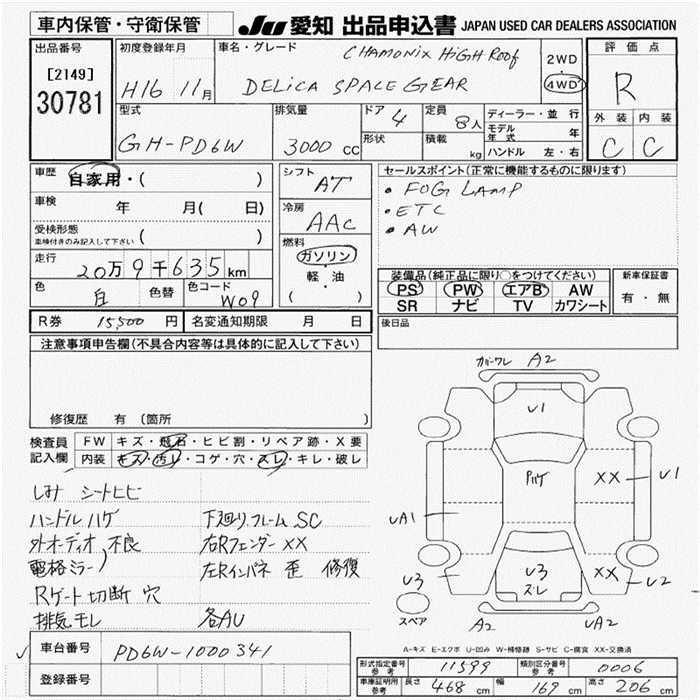 車内保管・守衛保管
JU 愛知 出品申込書 JAPAN USED CAR DEALERS ASSOCIATION
出品番号
[2149]
30781
初度登録年月
H16 11月
車名・グレード
CHAMONIX HIGH ROOF
DELICA SPACE GEAR
2WD
4WD
評価点
R
外装 内装
C C
型式
GH-PD6W
排気量
3000 cc
ドア 4
形状
定員 8人
積載 kg
ディーラー・並行
モデル年式 年
ハンドル 左・右
車歴
自家用・( )
車検 年 月( 日)
受検形態
車検付きのみ記入して下さい ( )
走行
20万9千635km
色 白
色替
色コード W09
シフト AT
冷房 AAC
燃料
ガソリン
軽・油
( )
セールスポイント(正常に機能するものに限ります)
・FOG LAMP
・ETC
・AW
装備品(純正品に限り○をつけてください)
PS PW エアB AW
SR ナビ TV カワシート
新車保証書
有・無
R券 15,500円
名変通知期限 月 日
後日品
注意事項申告欄(不具合内容等は具体的に記入して下さい)
修復歴 有 (箇所 )
検査員記入欄
FW キズ・飛石・ヒビ割・リペア跡・X要
内装 キズ・汚レ・コゲ・穴・スレ・キレ・破レ
しみ シートヒビ
ハンドルハゲ 下廻り.フレームSC
外オーディオ 不良 右Rフェンダー XX
電格ミラー) 左Rインパネ 歪 修復
Rゲート切断 穴
排気モレ 各AU
カバーワレ A2
U1
Pハゲ
XX U1
UA1
U3
U3
ズレ
XX U2
スペア
A2
UA2
A-キズ E-エクボ U-凹み W-補修跡 S-サビ C-腐食 XX-交換済
車台番号 PD6W-1000341
登録番号
形式指定番号参考 11599
類別区分番号参考 0006
車庫証明用参考 長さ 468 cm 幅 169 cm 高さ 206 cm